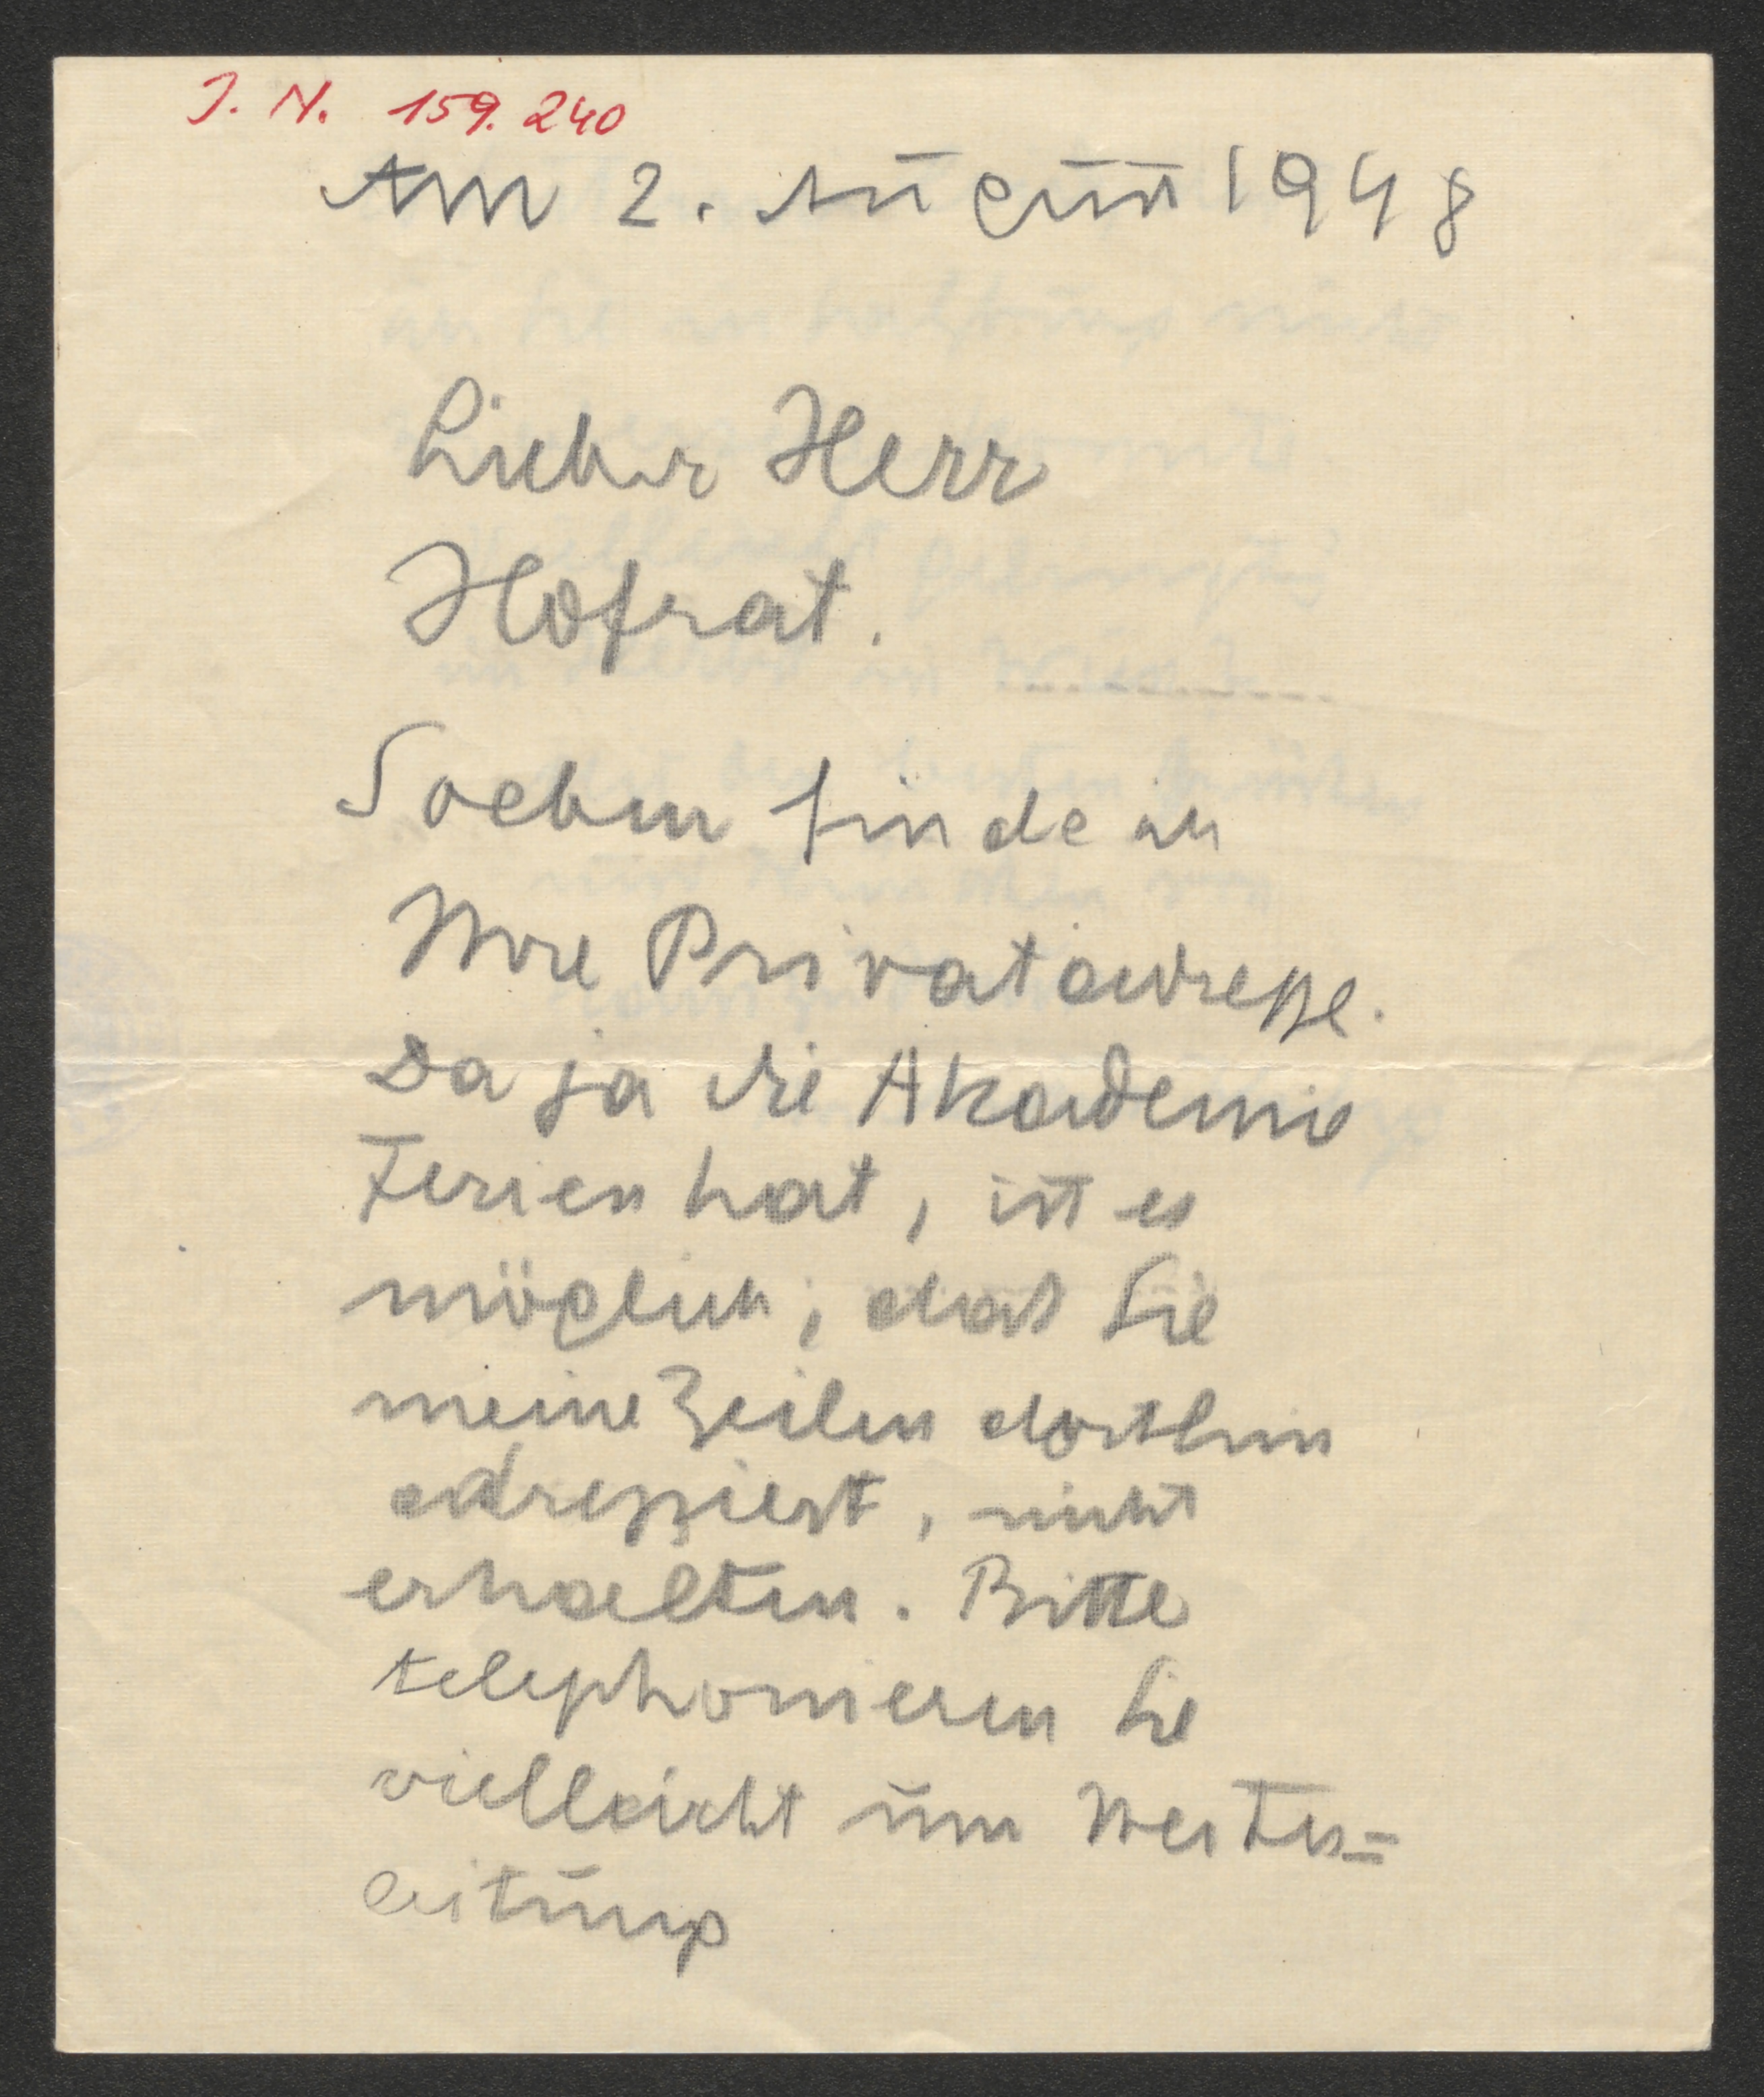 J. N. 159.240
Am 2. August 1948
Lieber Herr
Hofrat.
Soeben finde ich
Ihre Privatadresse.
Da ja die Akademie
Ferien hat, ist es
möglich, dass Sie
meine Zeilen dorthin
adressiert, nicht
erhalten. Bitte
telephonieren Sie
vielleicht um Weiter=
leitung